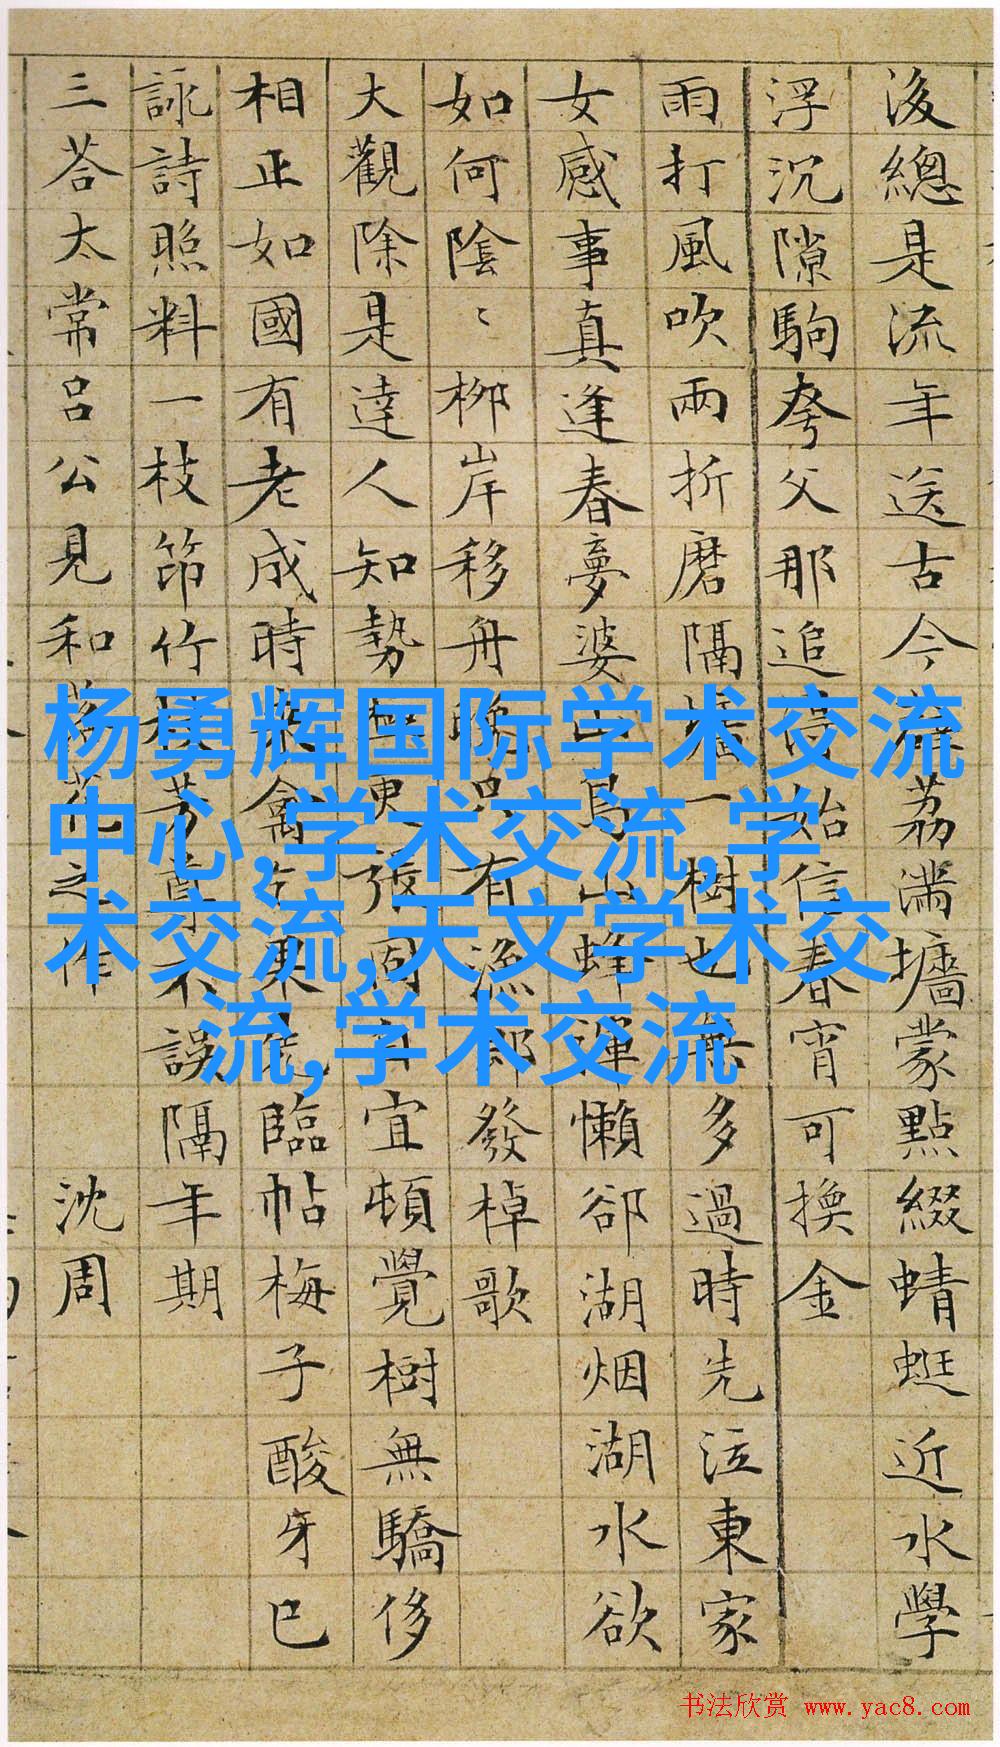 後總是流年送古今
荔满墻蒙點綴蜻蜓近水學
浮沉隙駒夸父那追
始信春宵可換金
雨打風吹兩折磨隔墻一樹也無多過時先泣東家
女感事真逢春夢婆
山蜂
懶卻湖烟湖水欲
如何陰〻柳岸移舟晚只有漁郎發棹歌
大觀除是達人知勢極更張固自宜頓覺樹無驕侈
相正如國有老成時
禽
果
臨帖梅子酸牙已
詠詩照料一枝笻竹
芳尊不誤隔年期
三荅太常呂公見和落花之作
沈周
杨勇辉国际学术交流
中心,学术交流,学
术交流,天文学术交
流,学术交流
书法欣赏 www.yac8.com